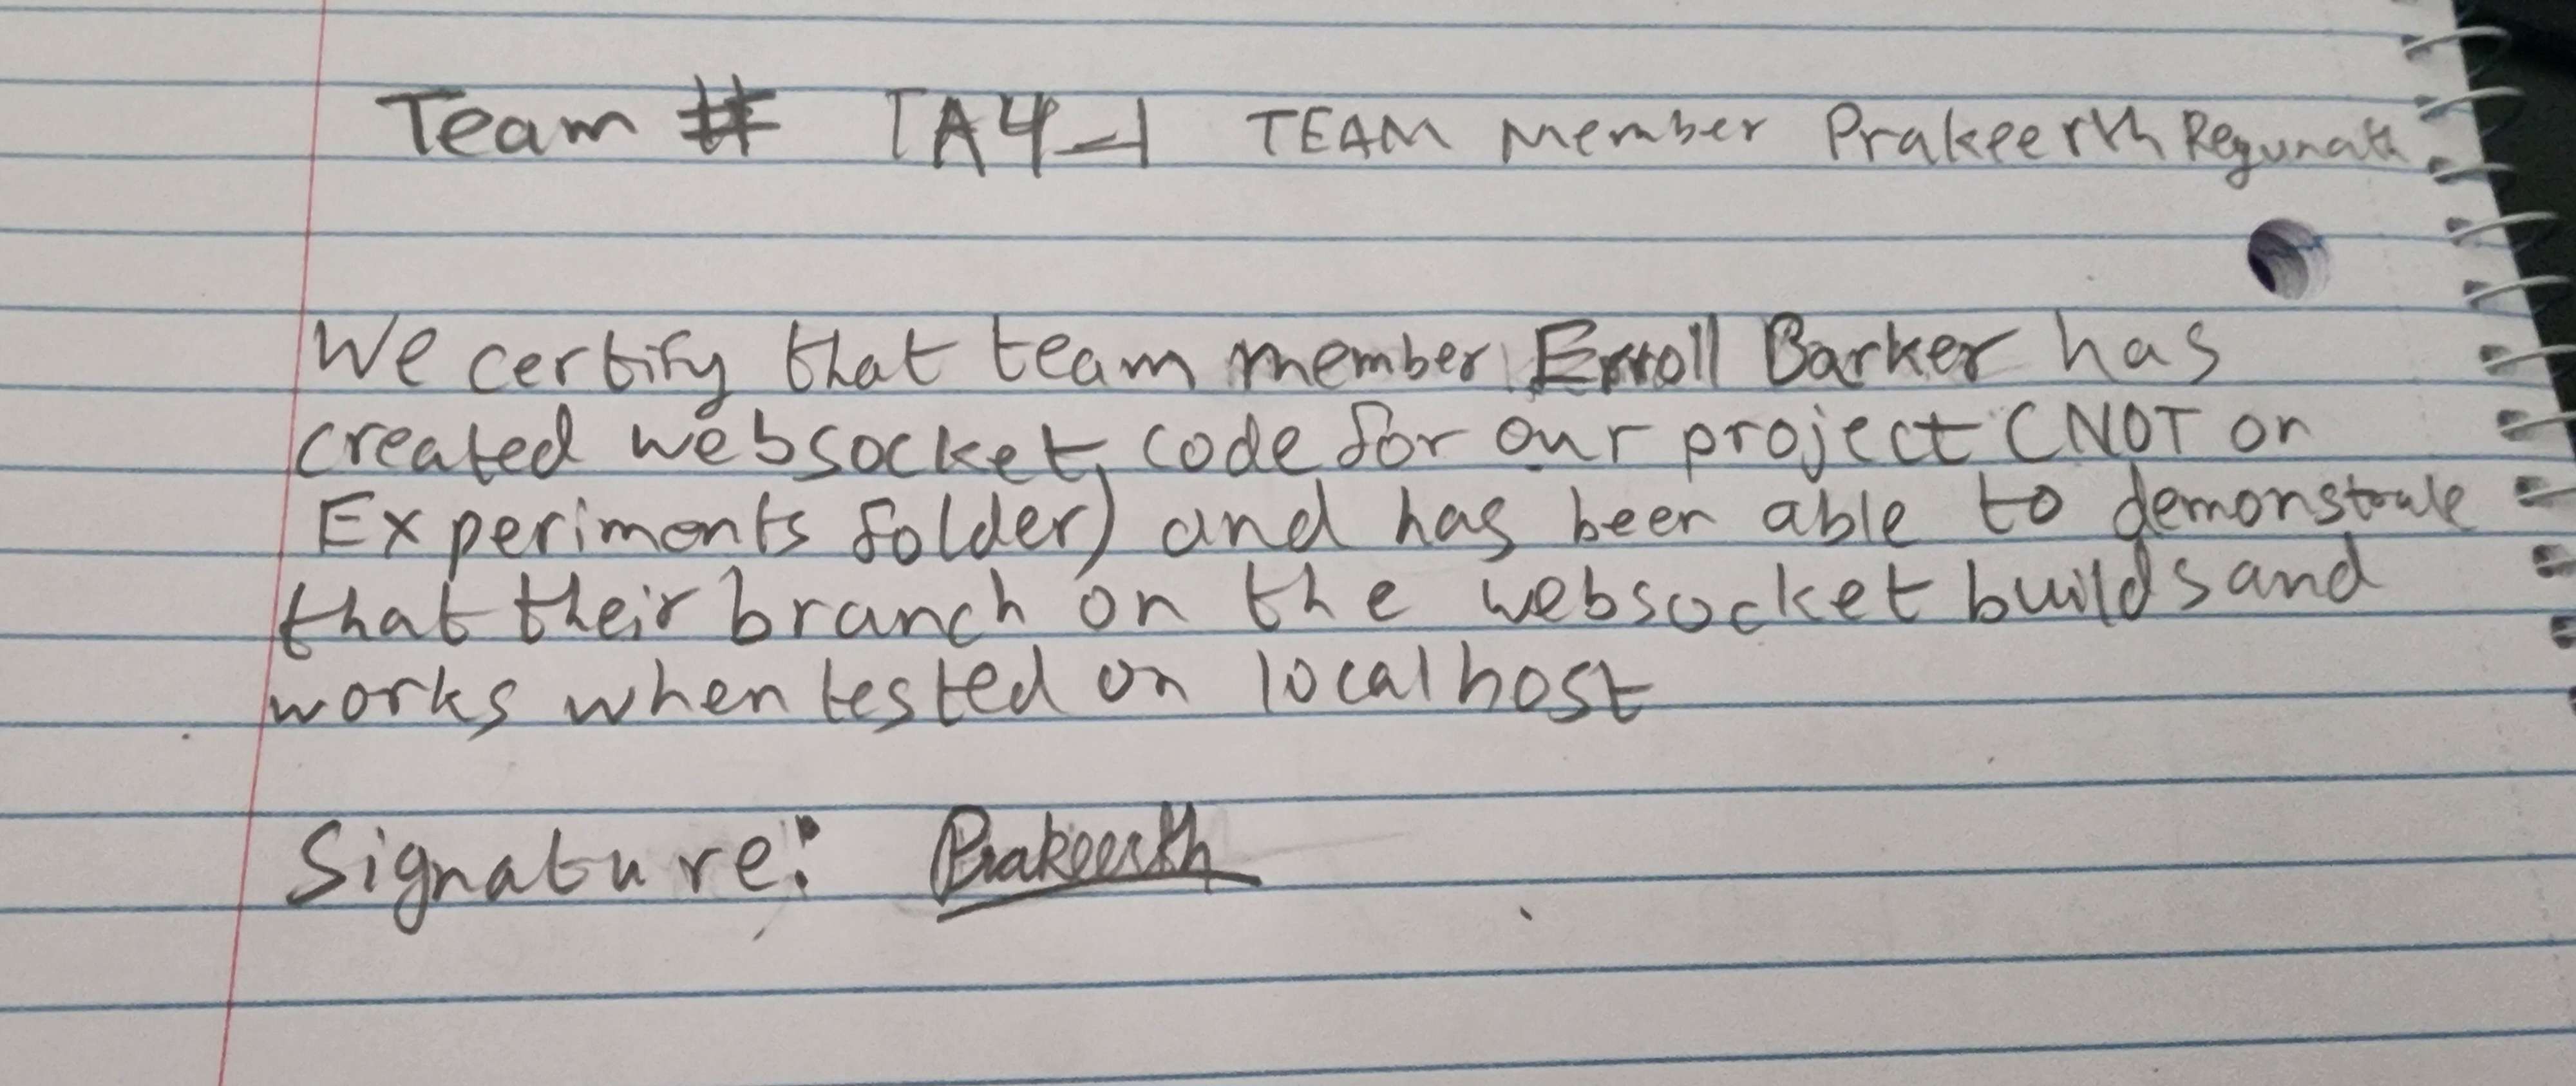 Team # TA4_1 TEAM Member Prakeerth Regunath
We certify that team member Erroll Barker has
created websocket, code for our project CNOT on
Experiments folder) and has been able to demonstrate
that their branch on the websocket builds and
works when tested on localhost
Signature: Prakeerth